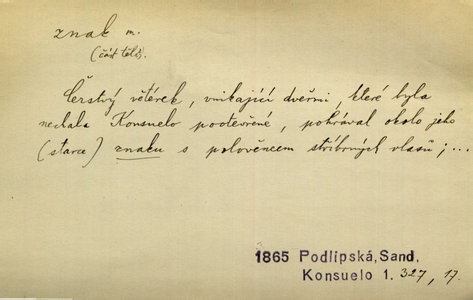 znak m.
(část těla).
Čerstvý větérek, vnikající dveřmi, které byla
nechala Konsuelo pootevřené, pohrával okolo jeho
(starce) znaku s polověncem stříbrných vlasů; ...
1865 Podlipská, Sand,
Konsuelo 1. 327, 17.